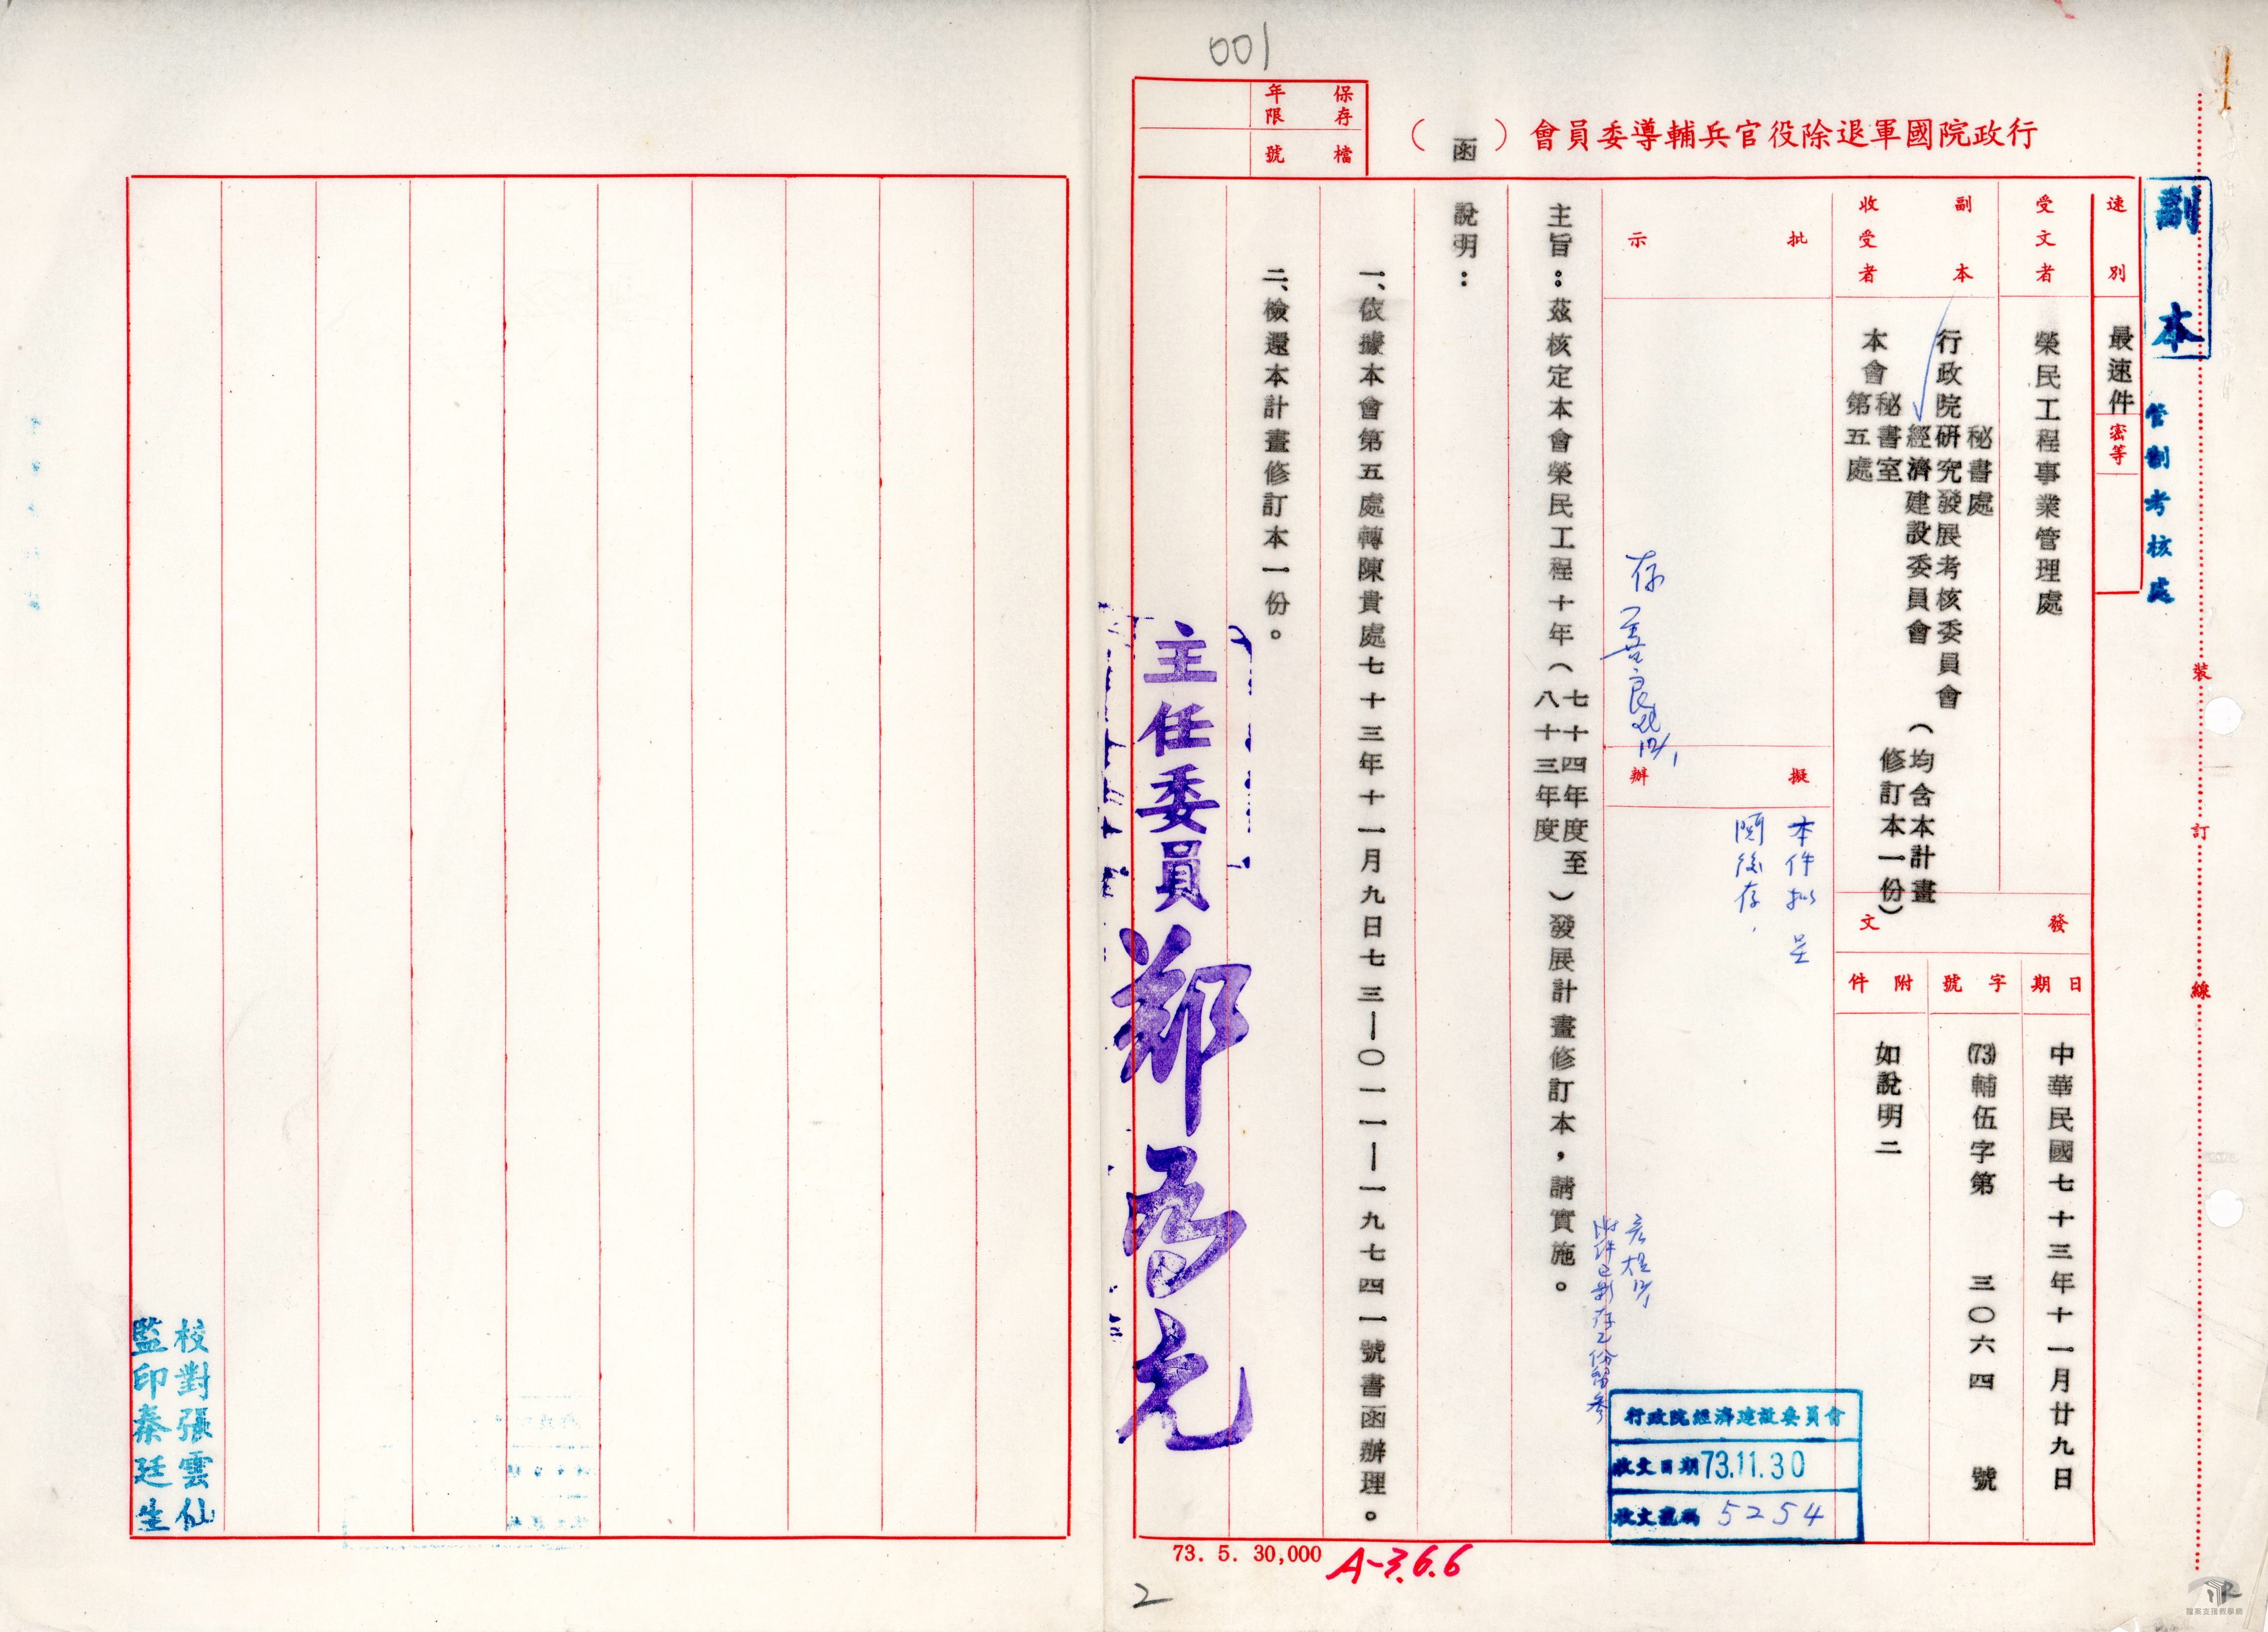 001
保存年限
檔號
行政院國軍退除役官兵輔導委員會（函）
副本
管制考核處
速別
最速件
密等
受文者
榮民工程事業管理處
副本收受者
秘書處
行政院研究發展考核委員會
經濟建設委員會
（均含本計畫修訂本一份）
本會秘書室
第五處
發文
日期
中華民國七十三年十一月廿九日
字號
(73)輔伍字第三〇六四號
附件
如說明二
批示
存
擬辦
本件擬呈
閱後存
主旨：茲核定本會榮民工程十年（七十四年度至八十三年度）發展計畫修訂本，請實施。
說明：
一、依據本會第五處轉陳貴處七十三年十一月九日七三－〇一一－一九七四一號書函辦理。
二、檢還本計畫修訂本一份。
主任委員 鄭為元
行政院經濟建設委員會
收文日期 73.11.30
收文號碼 5254
裝
訂
線
校對張雲仙
監印秦廷生
73. 5. 30,000
A-3.6.6
2
檔案支援教學網